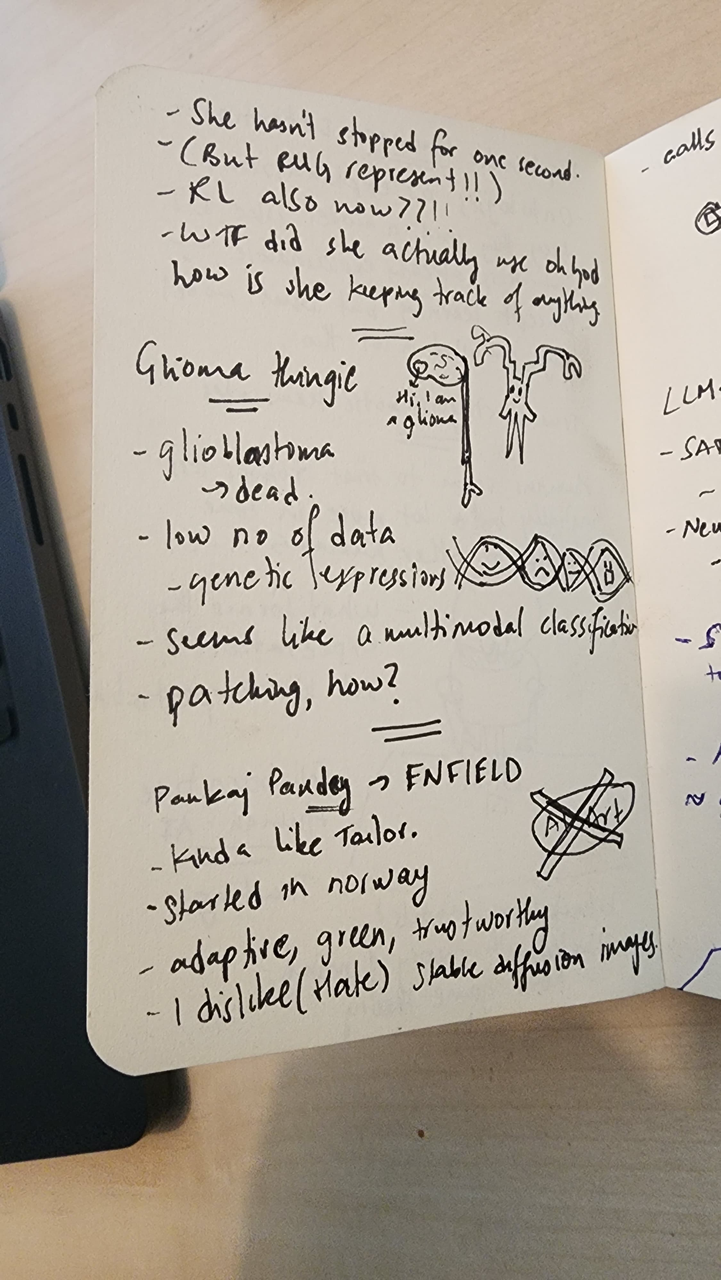 - She hasn't stopped for one second.
- (But RUG represent!!)
- RL also now??!!
- WTF did she actually use oh god
how is she keeping track of anything
Glioma thingie
Hi, I am
a glioma
- glioblastoma
→ dead.
- low no of data
- genetic expressions
- seems like a multimodal classification
- patching, how?
Pankaj Pandey → ENFIELD
AI Art
- Kinda like Tailor.
- Started in norway
- adaptive, green, trustworthy
- I dislike (Hate) stable diffusion images.
- calls
LLM